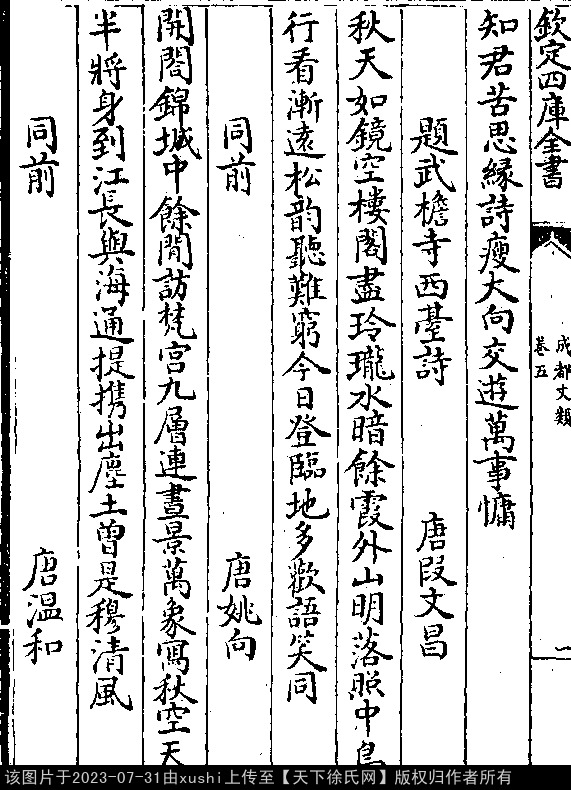 欽定四庫全書
成都文類
卷五
知君苦思緣詩瘦大向交遊萬事慵
題武檐寺西臺詩
唐段文昌
秋天如鏡空樓閣盡玲瓏水暗餘霞外山明落照中鳥
行看漸遠松韵聽難窮今日登臨地多歡語笑同
同前
唐姚向
開閣錦城中餘閒訪梵宮九層連晝景萬象寫秋空天
半將身到江長與海通提攜出塵土曾是穆清風
同前
唐温和
该图片于2023-07-31由xushi上传至【天下徐氏网】版权归作者所有